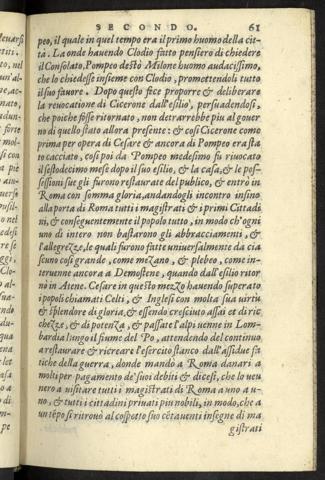 SECONDO. 61
peo, il quale in quel tempo era il primo huomo della cit-
tà. La onde hauendo Clodio fatto pensiero di chiedere
il Consolato, Pompeo destò Milone huomo audacissimo,
che lo chiedesse insieme con Clodio, promettendoli tutto
il suo fauore. Dopo questo fice proporre & deliberare
la reuocatione di Cicerone dall'esilio, persuadendosi,
che poiche fosse ritornato, non detrarrebbe piu al gouer
no di quello stato allora presente: & cosi Cicerone come
prima per opera di Cesare & ancora di Pompeo era sta
to cacciato, cosi poi da Pompeo medesimo fu riuocato
il sestodecimo mese dopo il suo esilio, & la casa, & le pos-
sessioni sue gli furono restaurate del publico, & entrò in
Roma con somma gloria, andandogli incontro insino
alla porta di Roma tutti i magistrati & i primi Cittadi
ni, & conseguentemente il popolo tutto, in modo ch'ogni
uno di intero non bastarono gli abbracciamenti, &
l'allegrezze, le quali furono fatte uniuersalmente da cia
scuno cosi grande, come mezano, & plebeo, come in-
teruenne ancora a Demostene, quando dall'esilio ritor
nò in Atene. Cesare in questo mezzo hauendo superato
i popoli chiamati Celti, & Inglesi con molta sua uirtù
& splendore di gloria, & essendo cresciuto assai et di ric
chezze, & di potenza, & passate l'alpi uenne in Lom-
bardia lungo il fiume del Po, attendendo del continuo
a restaurare & ricreare l'esercito stanco dall'assidue fa
tiche della guerra, donde mandò a Roma danari a
molti per pagamento de' suoi debiti & dicesi, che lo uen
nero a uisitare tutti i magistrati di Roma a uno a u-
no, & tutti i cittadini priuati piu nobili, in modo, che a
un tẽpo si ritrouò al cospetto suo cẽtauenti insegne di ma
gistrati